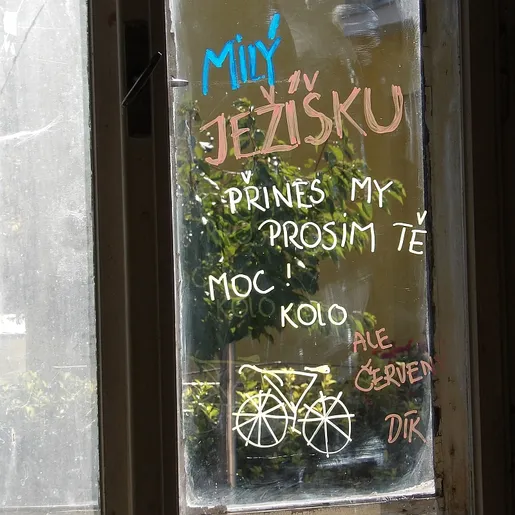 MILÝ
JEŽÍŠKU
PŘINES MY
PROSÍM TĚ
MOC !
KOLO
ALE
ČERVEN
DÍK